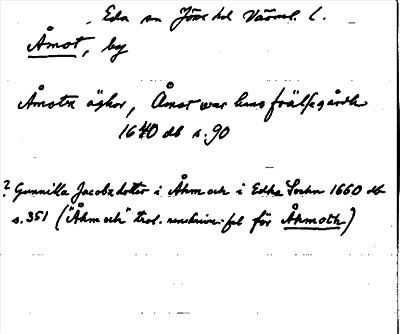 Eda sn Jösse hd Värml. l.
Åmot, by
Åmotz ägor, Åmot war hmo frälsegårdh
1640 db s. 90
? Gunnilla Jacobzdotter i Åkmoch i Edha Sochn 1660 db
s. 351 ("Åkmoch" trol. renskrivn.fel för Åhmoth)